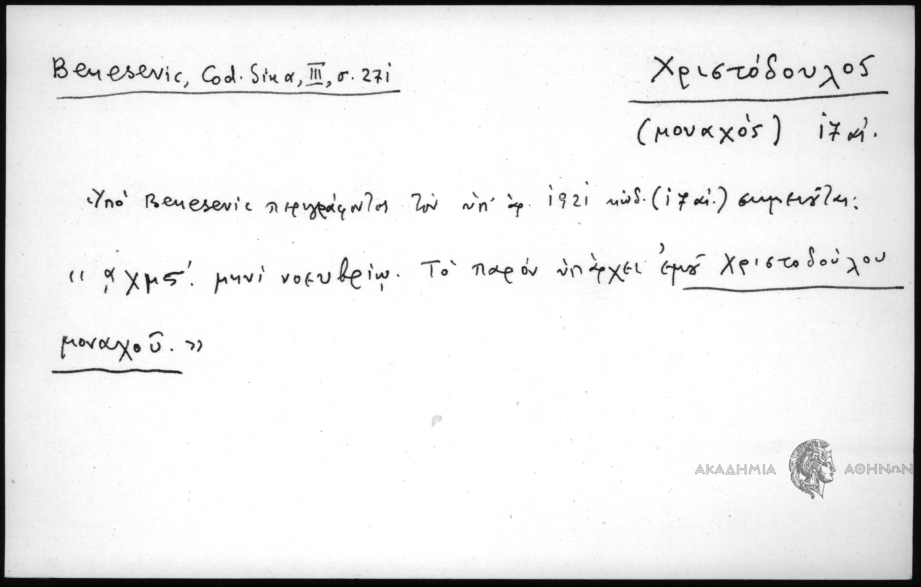 Benesevic, Cod. Sina, III, σ. 271
Χριστόδουλος
(μοναχὸς) 17 αἰ.
Ὑπὸ Benesevic περιγράφοντος τὸν ὑπ' ἀρ. 1921 κώδ. (17 αἰ.) σημειοῦται:
« ͵αχμϛ΄. μηνὶ νοευβρίῳ. Τὸ παρὸν ὑπάρχει ἐμοῦ Χριστοδούλου
μοναχοῦ. »
ΑΚΑΔΗΜΙΑ ΑΘΗΝΩΝ